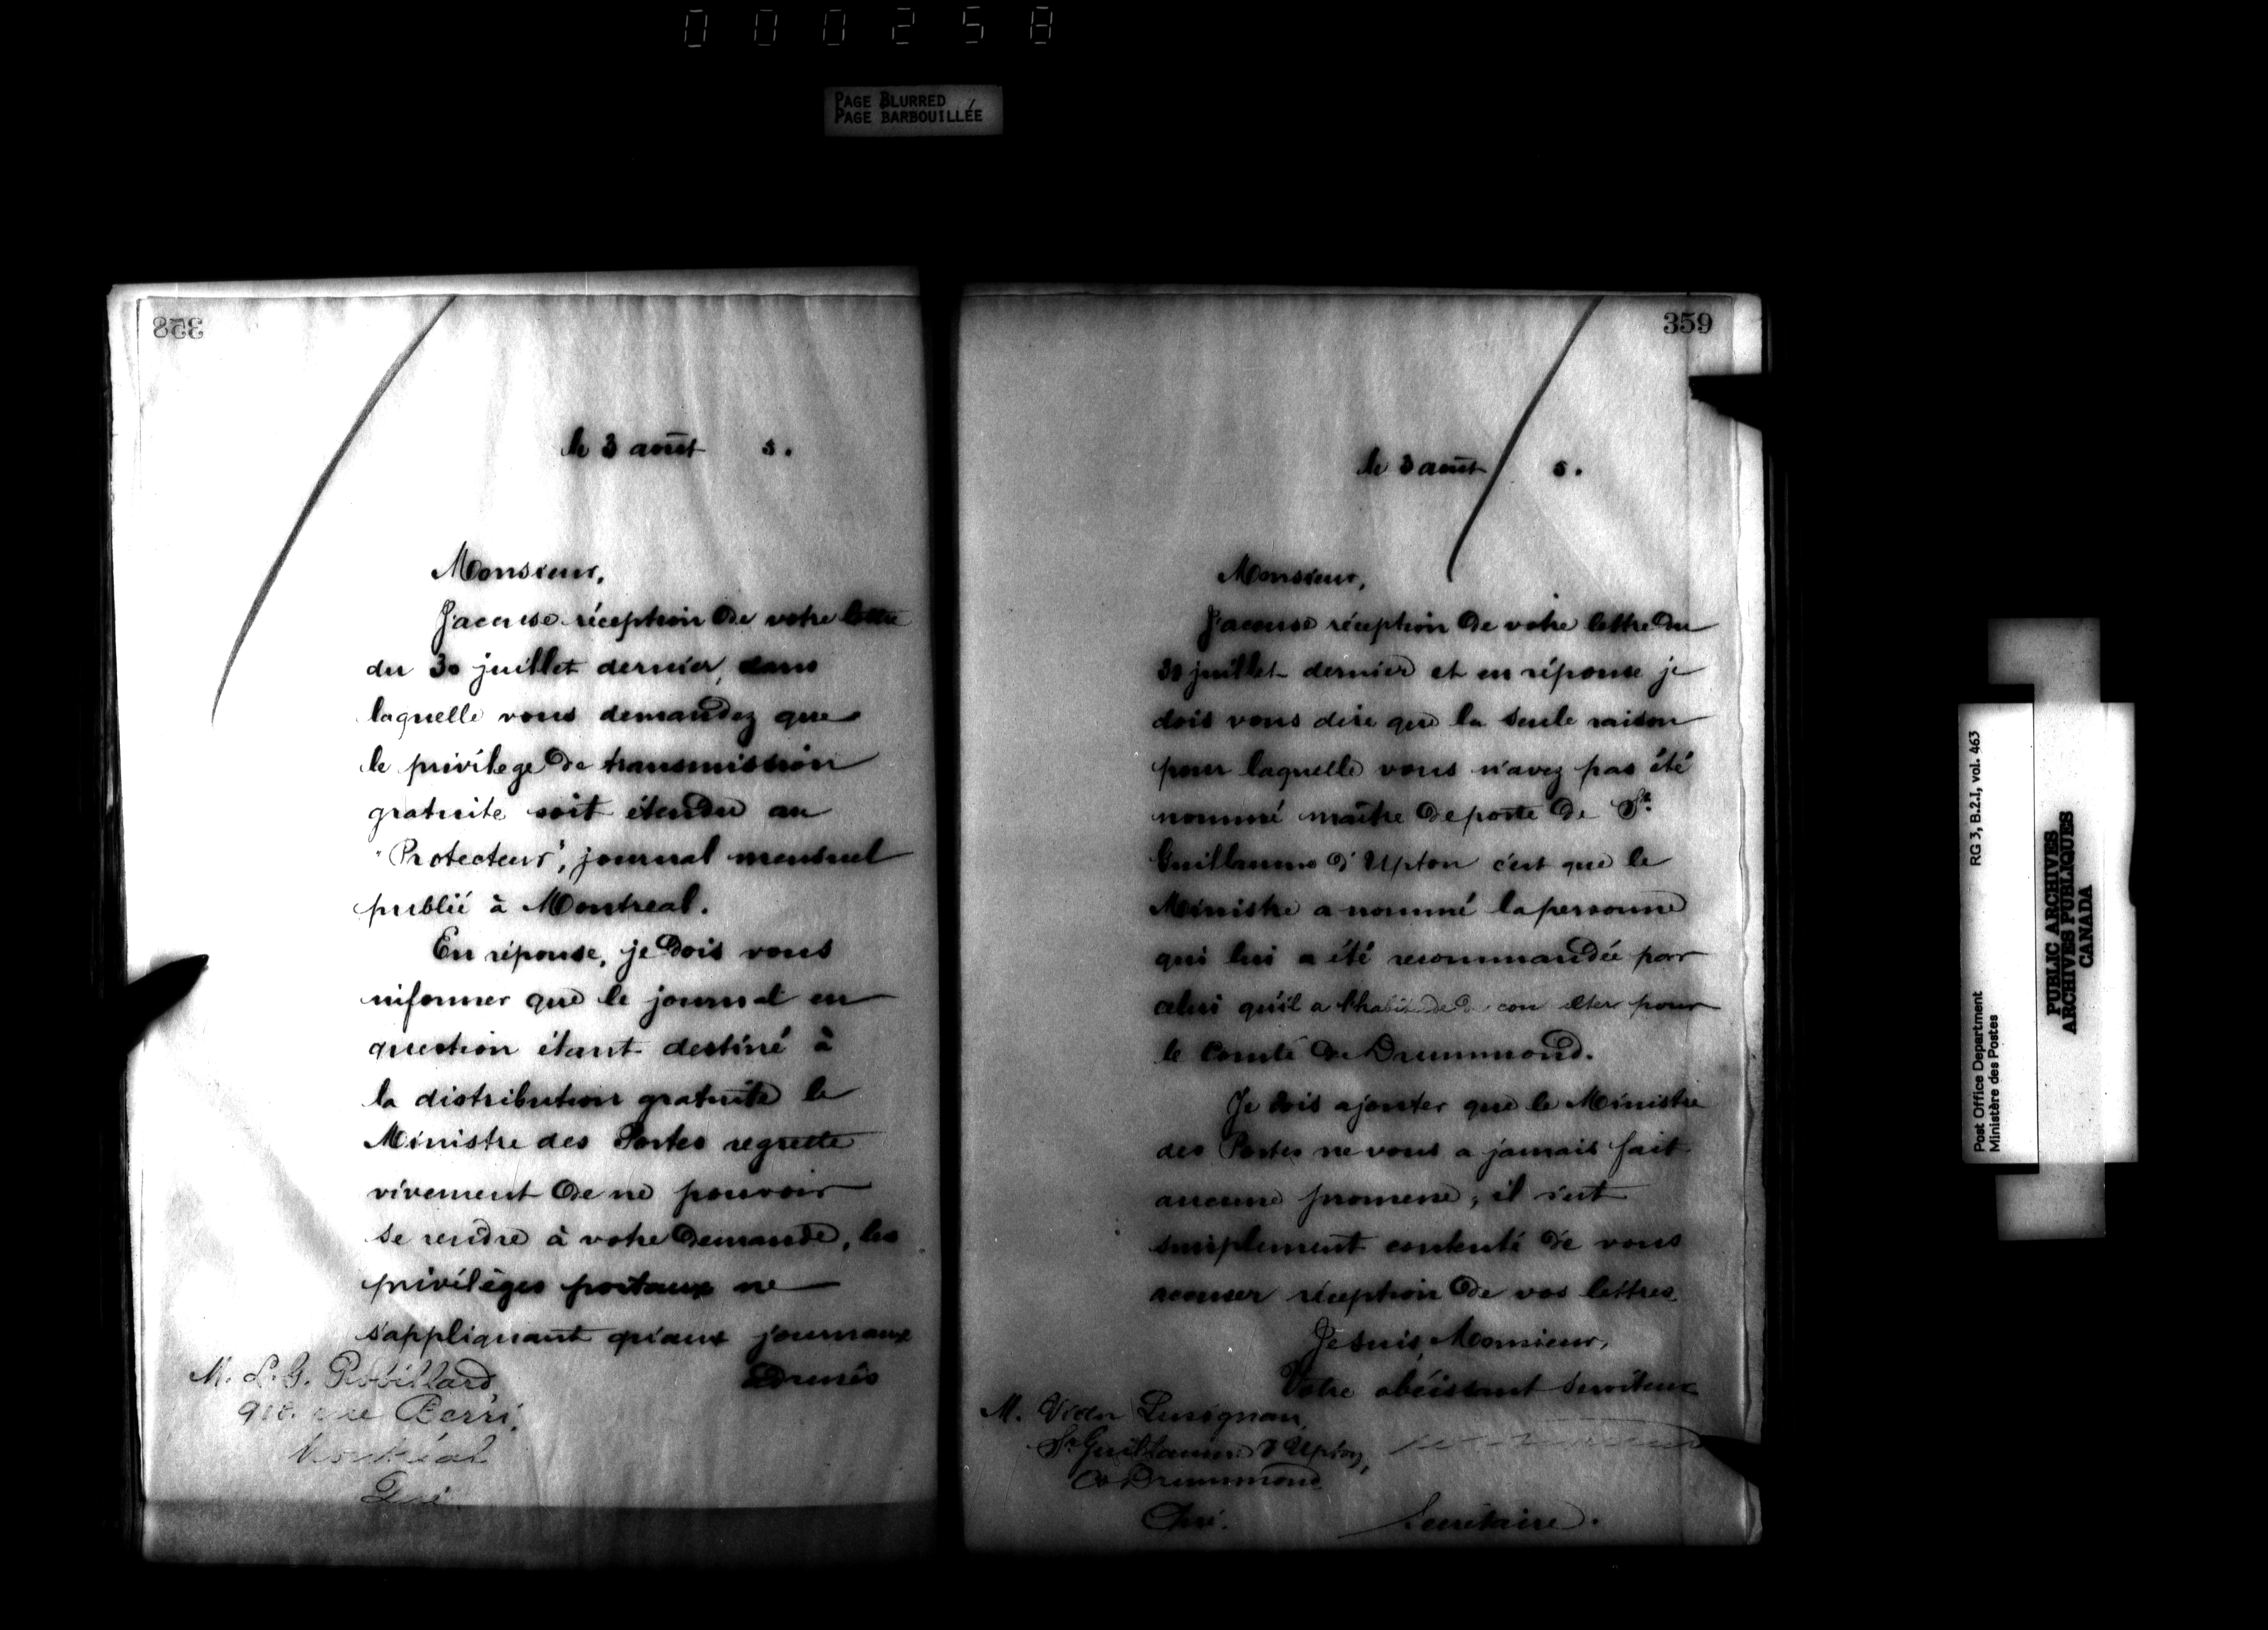 000258
PAGE BLURRED
PAGE BARBOUILLÉE
358
le 3 août 5.
Monsieur,
J'accuse réception de votre lettre
du 30 juillet dernier, dans
laquelle vous demandez que
le privilege de transmission
gratuite soit étendu au
"Protecteur", journal mensuel
publié à Montreal.
En réponse, je dois vous
informer que le journal en
question étant destiné à
la distribution gratuite le
Ministre des Postes regrette
vivement de ne pouvoir
se rendre à votre demande, les
privilèges postaux ne
s'appliquant qu'aux journaux
M. L. G. Robillard,
rue Berri,
Montréal
Qué.
359
le 3 août 5.
Monsieur,
J'accuse réception de votre lettre du
30 juillet dernier et en réponse je
dois vous dire que la seule raison
pour laquelle vous n'avez pas été
nommé maître de poste de St.
Guillaume d'Upton c'est que le
Ministre a nommé la personne
qui lui a été recommandée par
celui qu'il a l'habitude de con ulter pour
le Comté de Drummond.
Je dois ajouter que le Ministre
des Postes ne vous a jamais fait
aucune promesse; il s'est
simplement contenté de vous
accuser réception de vos lettres
Je suis, Monsieur,
Votre obéissant serviteur
M. Victor Lusignan,
St Guillaume d'Upton,
Co Drummond
Qué.
Secrétaire.
Post Office Department
Ministère des Postes
RG 3, B.2.I, vol. 463
PUBLIC ARCHIVES
ARCHIVES PUBLIQUES
CANADA